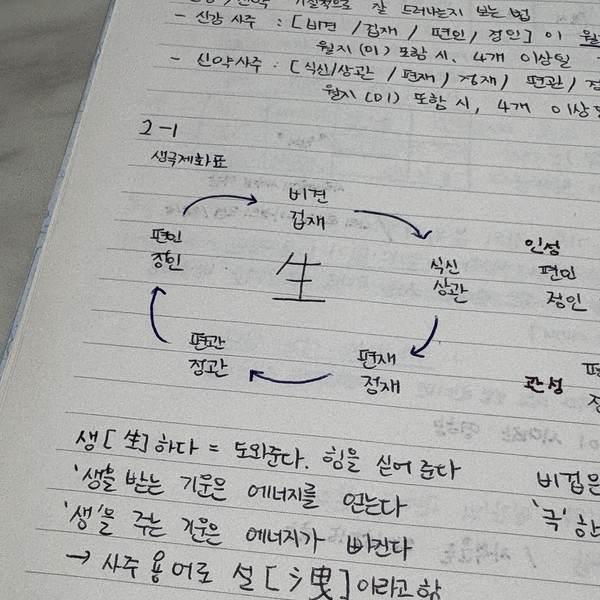 잘 드러나는지 보는 법
- 신강 사주 : [비견 / 겁재 / 편인 / 정인] 이
월지(이) 포함 시, 4개 이상일
- 신약사주 : [식신/상관 / 편재 / 정재 / 편관 /
월지(이) 포함 시, 4개 이상일
2-1
생극제화표
비견
겁재
편인
정인
식신
상관
生
편관
정관
편재
정재
인성
편인
정인
관성
생[生]하다 = 도와준다. 힘을 실어 준다
'생'을 받는 기운은 에너지를 얻는다
'생'을 주는 기운은 에너지가 빠진다
→ 사주 용어로 설[洩]이라고 함
비겁은
'극'한